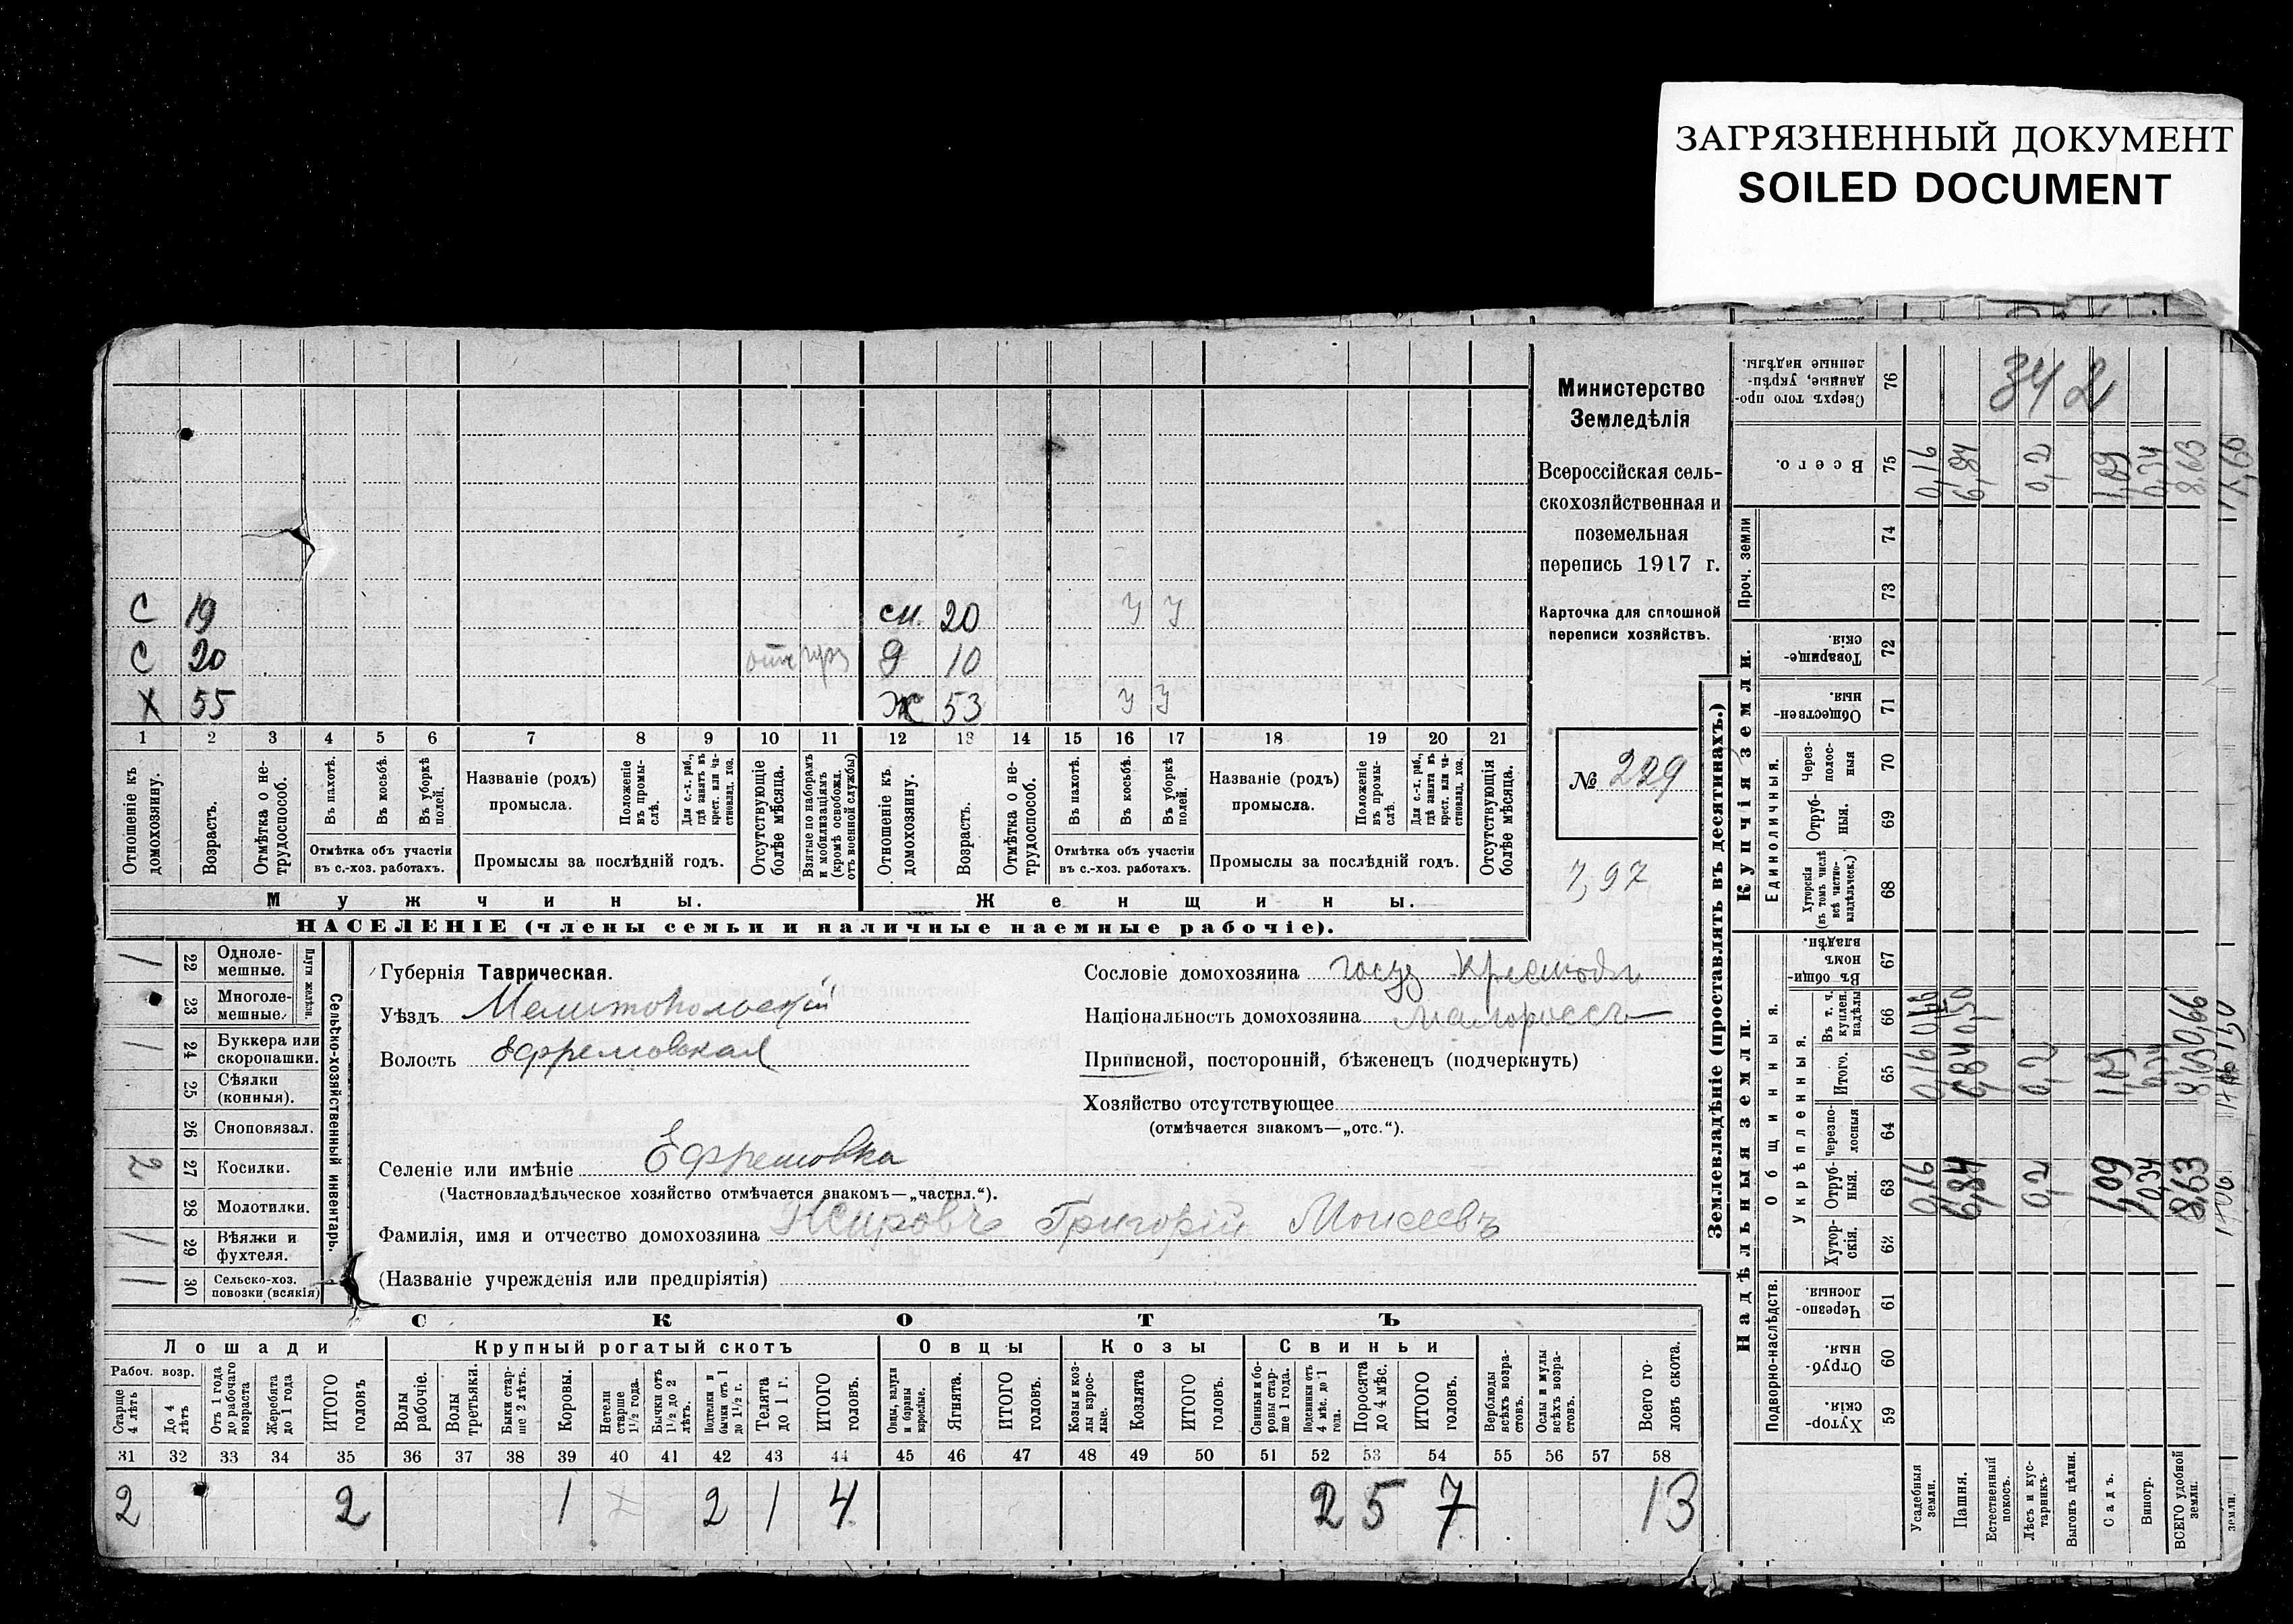 ЗАГРЯЗНЕННЫЙ ДОКУМЕНТ
SOILED DOCUMENT
342
Министерство
Земледѣлія
Всероссійская сель-
скохозяйственная и
поземельная
перепись 1917 г.
Карточка для сплошной
переписи хозяйствъ.
№ 229
7,97
С 19 см. 20 У У
С 20 9 10
Х 55 Ж 53 У У
1 2 3 4 5 6 7 8 9 10 11 12 13 14 15 16 17 18 19 20 21
Отношеніе къ домохозяину.
Возрастъ.
Отмѣтка о не-трудоспособ.
Въ пахотѣ.
Въ косьбѣ.
Въ уборкѣ полей.
Отмѣтка объ участіи въ с.-хоз. работахъ.
Названіе (родъ) промысла.
Положеніе въ промы-слѣ.
Для с.-х. раб., гдѣ занятъ въ крест. или ча-стновлад. хоз.
Промыслы за послѣдній годъ.
Отсутствующіе болѣе мѣсяца.
Взятые по наборамъ и мобилизаціямъ (кромѣ освобожд. отъ военной службы)
Отношеніе къ домохозяину.
Возрастъ.
Отмѣтка о не-трудоспособ.
Въ пахотѣ.
Въ косьбѣ.
Въ уборкѣ полей.
Отмѣтка объ участіи въ с.-хоз. работахъ.
Названіе (родъ) промысла.
Положеніе въ промы-слѣ.
Для с.-х. раб., гдѣ занята въ крест. или ча-стновлад. хоз.
Промыслы за послѣдній годъ.
Отсутствующія болѣе мѣсяца.
Мужчины. Женщины.
НАСЕЛЕНІЕ (члены семьи и наличные наемные рабочіе).
Сельско-хозяйственный инвентарь.
Плуги желѣзн.
1 22 Одноле-мешные.
23 Многоле-мешные.
1 24 Буккера или скоропашки.
25 Сѣялки (конныя).
26 Сноповязал.
2 27 Косилки.
28 Молотилки.
1 29 Вѣялки и фухтеля.
1 30 Сельско-хоз. повозки (всякія)
Губернія Таврическая.
Уѣздъ Мелитопольскій
Волость Ефремовская
Селеніе или имѣніе Ефремовка
(Частновладѣльческое хозяйство отмѣчается знакомъ—„частвл.“).
Фамилія, имя и отчество домохозяина Жировъ Григорій Моисеевъ
(Названіе учрежденія или предпріятія)
Сословіе домохозяина госуд крестьян
Національность домохозяина малороссъ
Приписной, посторонній, бѣженец (подчеркнуть)
Хозяйство отсутствующее
(отмѣчается знакомъ—„отс.“).
СКОТЪ
Лошади Крупный рогатый скотъ Овцы Козы Свиньи
Рабоч. возр.
Старше 4 лѣтъ
До 4 лѣтъ
Отъ 1 года до рабочаго возраста
Жеребята до 1 года
ИТОГО головъ
Волы рабочіе.
Волы третьяки.
Быки стар-ше 2 лѣтъ.
Коровы.
Нетели старше 1½ года.
Бычки отъ 1½ до 2 лѣтъ.
Подтелки и бычки отъ 1 до 1½ г.
Телята до 1 г.
ИТОГО головъ.
Овцы, валухи и бараны взрослые.
Ягнята.
ИТОГО головъ.
Козы и коз-лы взрос-лые.
Козлята
ИТОГО головъ.
Свиньи и бо-ровы стар-ше 1 года.
Подсвинки отъ 4 мѣс. до 1 года.
Поросята до 4 мѣс.
ИТОГО головъ.
Верблюды всѣхъ возра-стовъ.
Ослы и мулы всѣхъ возра-стовъ.
Всего го-ловъ скота.
31 32 33 34 35 36 37 38 39 40 41 42 43 44 45 46 47 48 49 50 51 52 53 54 55 56 57 58
2 2 1 2 1 4 2 5 7 13
Землевладѣніе (проставлять въ десятинахъ.)
Купчія земли.
Надѣльныя земли.
76 Сверхъ того про-данные, укрѣп-ленные надѣлы.
75 Всего. 0,16 6,84 0,2 1,09 0,34 8,63
Проч. земли
74
73
72 Товарище-скія.
71 Обществен-ныя.
Единоличныя.
70 Через-полос-ныя
69 Отруб-ныя.
68 Хуторскія (въ томъ числѣ всѣ частно-владѣльческ.)
Общинныя.
67 Въ общин-номъ владѣн.
Укрѣпленныя.
66 Въ т. ч. куплен. надѣлы
65 Итого. 0,16 6,84 0,2 1,09
64 Черезпо-лосныя
63 Отруб-ныя. 0,16 6,84 0,2 1,09 0,34 8,63
62 Хутор-скія.
Подворно-наслѣдств.
61 Черезпо-лосныя.
60 Отруб-ныя.
59 Хутор-скія.
Усадебныя земли.
Пашня.
Естественный покосъ.
Лѣсъ и кус-тарникъ.
Выгонъ цѣлин.
Садъ.
Виногр.
ВСЕГО удобной земли.
земли.